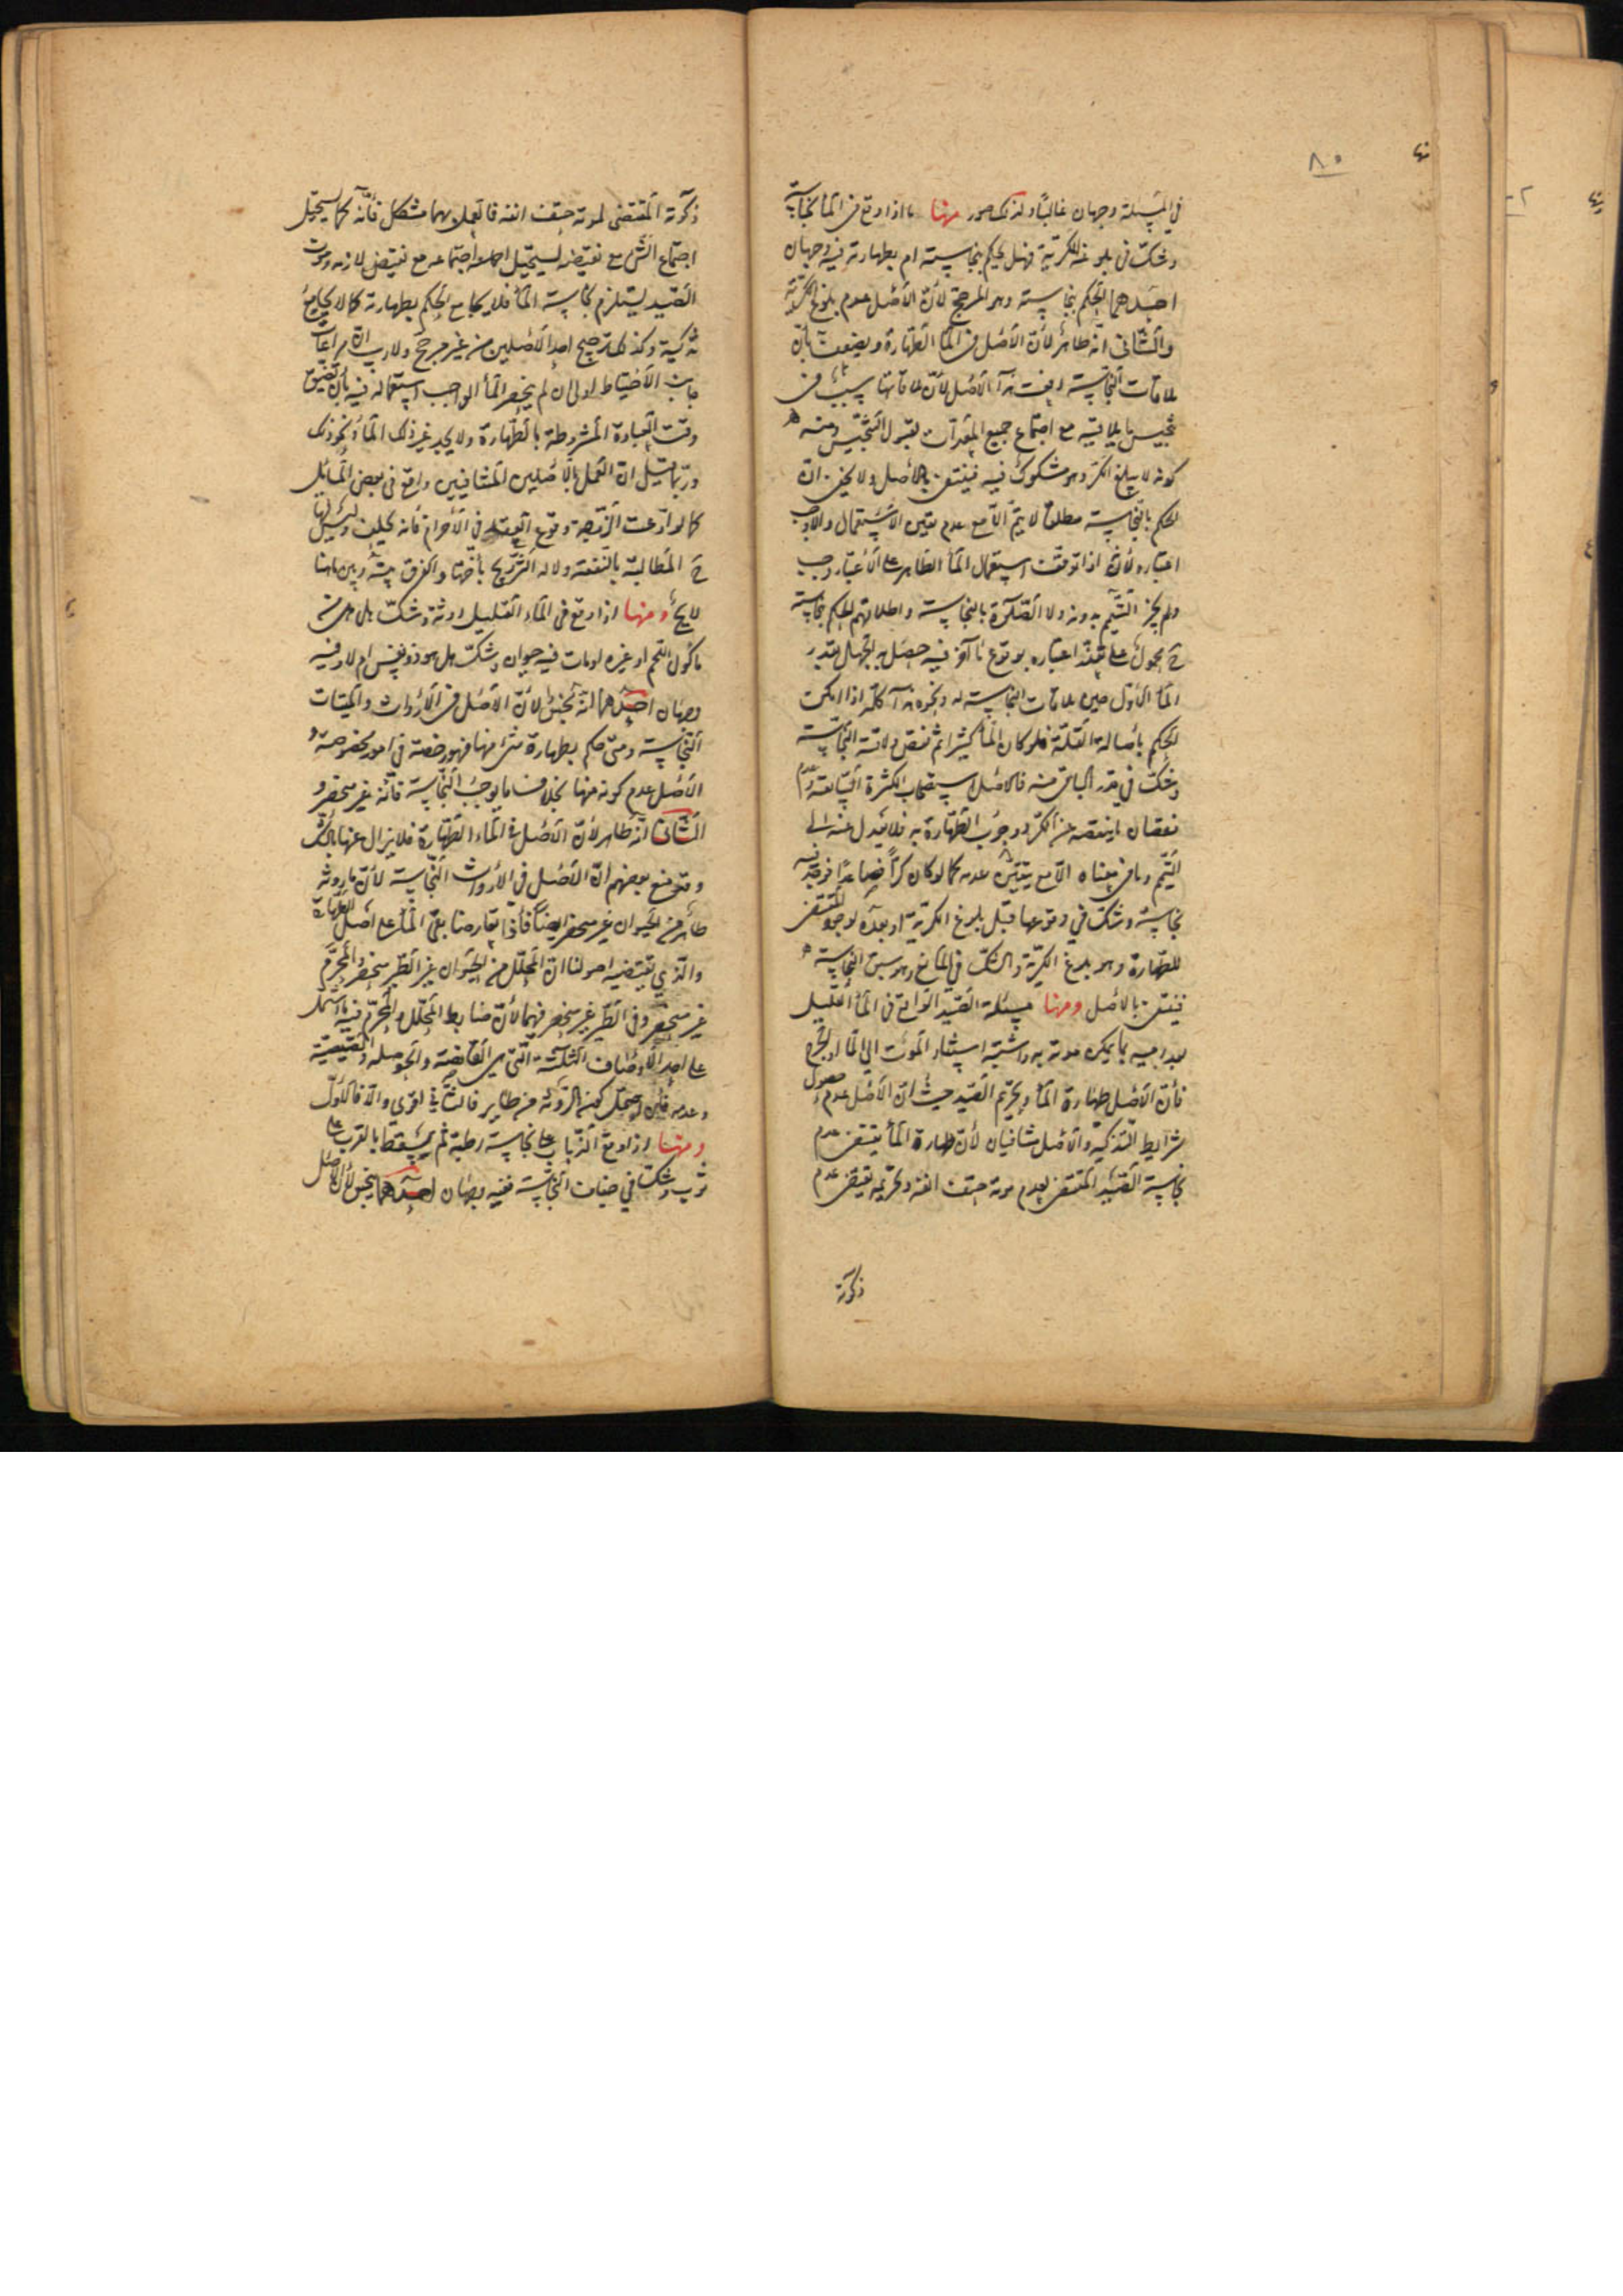 ٨٥
في المسئلة وجهان غالبًا ولذلك صور منها ما اذا وقع في الماء نجاسة
وشك في بلوغه الكرية فهل يحكم بنجاسته ام بطهارته فيه وجهان
احدهما الحكم بنجاسته وهو المرجح لأن الأصل عدم بلوغ الكرية
والثاني انه طاهر لأن الأصل في الماء الطهارة ويضعف بأن
ملاقات النجاسة رفعت هذا الأصل لأن ملاقاتها سبب في
تنجيس ما يلاقيه مع اجتماع جميع
كونه لا يبلغ الكر وهو مشكوك فيه فينتفي بالأصل ولا يخفى ان
الحكم بالنجاسة مطلقا لا يتم الا مع عدم تعين الاستعمال والا وجب
اعتباره لأنه اذا توقفت استعمال الماء الطاهر على الاعتبار وجب
ولم يجز التيمم بدونه ولا الصلوة بالنجاسة واطلاقهم الحكم بنجاسته
ح محمول على تعذر اعتباره بوقوع ماء آخر فيه حصل به الجهل بقدر
الماء الأول حين ملاقات النجاسة له ونحوه هذا كله اذا امكن
الحكم بأصالة القلة فلو كان الماء كثيرا ثم نقص ولاقته النجاسة
وشك في قدر الباقي منه فالاصل استصحاب الكثرة السابقة وعدم
نقصان ما ينقصه عن الكر ووجوب الطهارة به فلا يعدل عنه الى
التيمم وما في معناه الا مع تيقن عدمه كما لو كان كرًا فصاعدًا فوجد فيه
نجاسة وشك في وقوعها قبل بلوغ الكرية او بعده لوجود المقتضى
للطهارة وهو بلوغ الكرية والشك في المانع وهو سبق النجاسة
فينتفي بالاصل ومنها مسئلة الصيد الواقع في الماء القليل
بعد رميه بما يمكن موته به واشتبه استناد الموت الى الماء او الجرح
فأن الأصل طهارة الماء وتحريم الصيد حيث ان الأصل عدم حصول
شرايط التذكية والأصلان متنافيان لأن طهارة الماء يقتضى عدم
نجاسة الصيد المقتضى لعدم موته حتف انفه وتحريمه يقتضى عدم
ذكوته
ذكوته المقتضى لموته حتف انفه فالعمل بهما مشكل فأنه كما يستحيل
اجتماع الشئ مع نقيضه يستحيل اجتماعه مع نقيض لازمه وموت
الصيد يستلزم نجاسة الماء فلا يجامع الحكم بطهارته كما لا يجامع
تذكيته وكذلك ترجيح احد الأصلين من غير مرجح ولا ريب ان مراعات
جانب الأحتياط اولى ان لم ينحصر الماء الواجب استعماله فيه بأن تضيق
وقت العبادة المشروطة بالطهارة ولا يجد غير ذلك الماء ونحو ذلك
وربما قيل ان العمل بالأصلين المتنافيين واقع في بعض المسائل
كما لو ادعت الزوجة وقوع العقد في الأحرام فأنه يحلف وليس لها
ح المطالبة بالنفقة ولا له التزويج بأختها والفرق بينه وبين ما هنا
لايح ومنها اذا وقع في الماء القليل روثة وشك هل هي من
ماكول اللحم او غيره او مات فيه حيوان وشك هل هو ذو نفس ام لا وفيه
وجهان احدهما انه نجس لأن الأصل في الأرواث والميتات
النجاسة ومتى حكم بطهارة شئ منها فهو رخصة في امور مخصوصة و
الأصل عدم كونه منها بخلاف ما يوجب النجاسة فأنه غير منحصر و
الثاني انه طاهر لأن الأصل في الماء الطهارة فلا يزال عنها بالشك
وقد منع بعضهم ان الأصل في الأرواث النجاسة لأن ما روثه
طاهر من الحيوان غير منحصر ايضًا فأذا تعارضا بقى الماء على اصل الطهارة
والذي يقتضيه اصولنا ان المحلل من الحيوان غير الطير منحصر والمحرم
غير منحصر وفي الطير غير منحصر فيهما لأن ضابط المحلل والمحرم فيه ما اشتمل
على احد الأوصاف الثلثة التي هي القانصة والحوصلة والصيصية
وعدمه فأن احتمل كون الروثة من طاير فالثاني اقوى والا فالأول
ومنها اذا وقع الذباب على نجاسة رطبة ثم سقط بالقرب على
ثوب وشك في جفاف النجاسة ففيه وجهان احدهما ينجس لأن الأصل